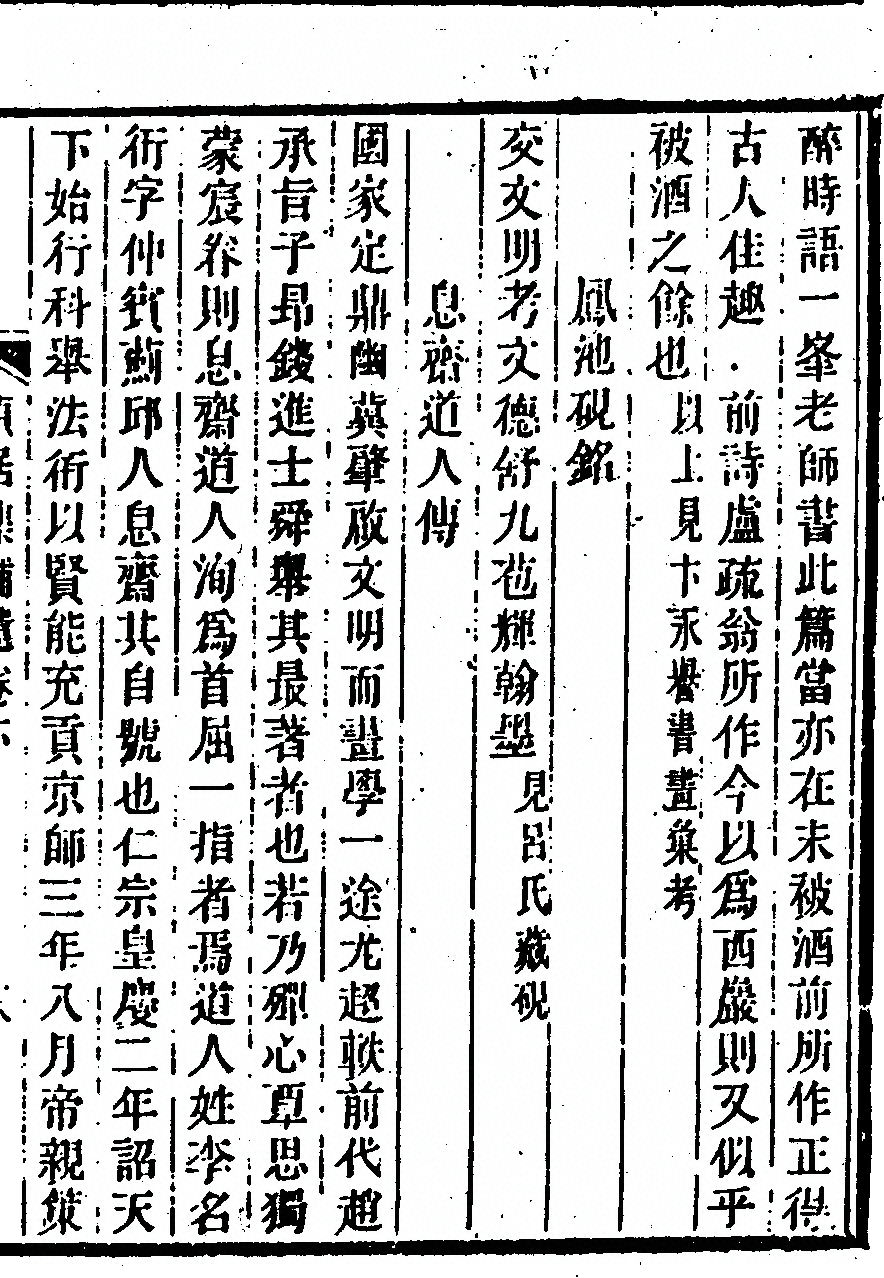 醉時語一峯老師書此篇當亦在未被酒前所作正得
古人佳趣．前詩盧疏翁所作今以為西巖則又似乎
被酒之餘也以上見卞永譽書畫彙考
鳳池硯銘
交文明考文德舒九苞輝翰墨見呂氏藏硯
息齋道人傳
國家定鼎幽冀肇啟文明而畫學一途尤超軼前代趙
承旨子昻錢進士舜舉其最著者也若乃殫心覃思獨
蒙宸眷則息齋道人洵為首屈一指者焉道人姓李名
衎字仲賓薊邱人息齋其自號也仁宗皇慶二年詔天
下始行科舉法術以賢能充貢京師三年八月帝親策